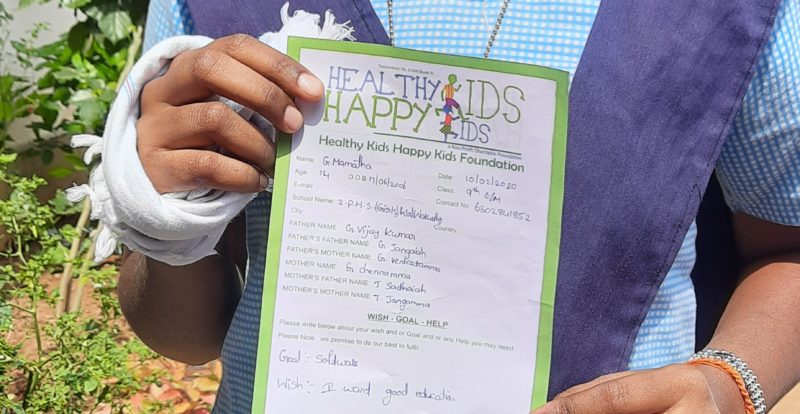 HEALTHY KIDS
HAPPY KIDS
A Non-Profit Charitable Foundation
Healthy Kids Happy Kids Foundation
Name: G. Mamatha Date: 10/02/2020
Age 14 DOB Class: 9th E/M
E-mail Contact No 6302841852
School Name: Z.P.H.S (Girls) Kalwakurthy
City: Country:
FATHER NAME: G. Vijay Kumar
FATHER'S FATHER NAME: G. Jangaiah
FATHER'S MOTHER NAME: G. Venkatamma
MOTHER NAME: G. chennamma
MOTHER'S FATHER NAME: J. Sadhaiah
MOTHER'S MOTHER NAME: J. Jangamma
WISH - GOAL - HELP
Please write below about your wish and or Goal and or any Help you may need.
Please Note : we promise to do our best to fulfil
Goal:- Software.
Wish:- I want good education